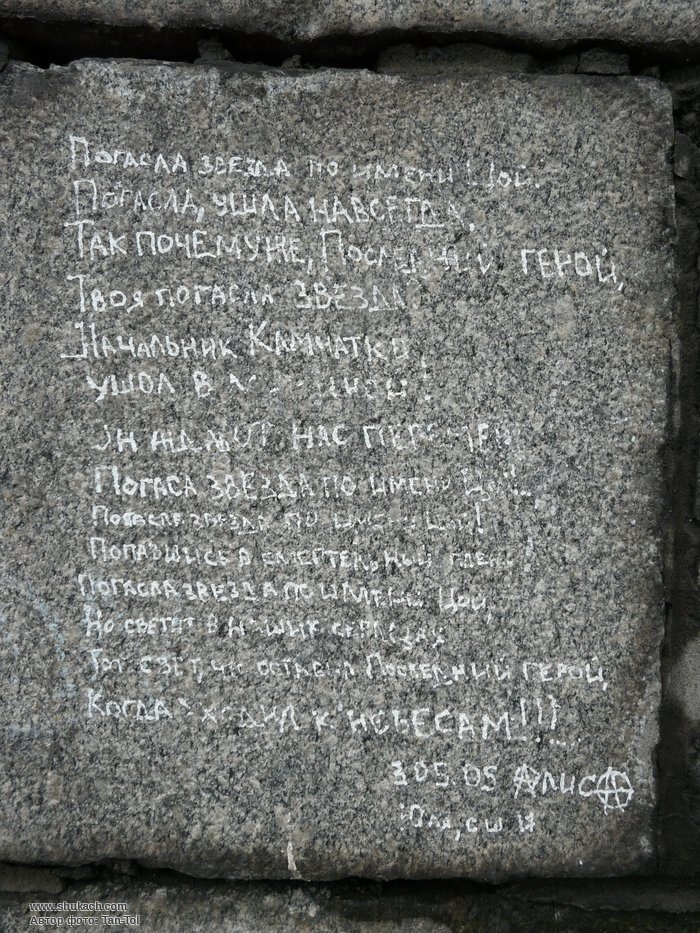 Погасла звезда по имени Цой.
Погасла, ушла навсегда,
Так почемуже, Последний герой,
Твоя погасла звезда
Начальник Камчатки,
ушол в !
нас перемен
Погаса звезда по имени Цой!..
Погасла звезда по имени Цой!
Попавшись в смертельный плен!
Погасла звезда по имени Цой,
Но светит в наших сердцах
Тот свет, что оставил Последний герой,
Когда уходил к небесам!!!
3 05.05 Алиса
Юля,
www.shukach.com
Автор фото: Tan-Tol